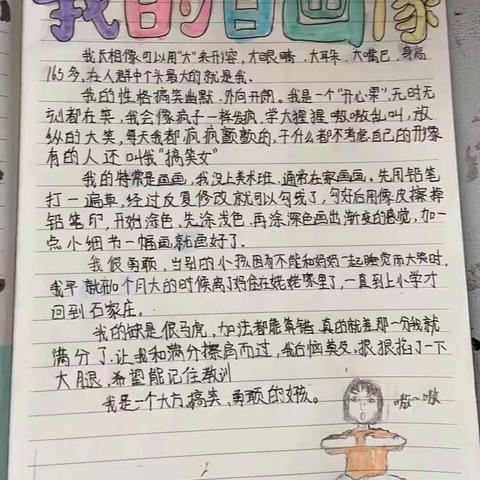 我的自画像
我长相像可以用"大"来形容，大眼睛，大耳朵，大嘴巴，身高
165多，在人群中个头最大的就是我。
我的性格搞笑幽默，外向开朗。我是一个"开心果"，无时无
刻都在笑，我会像疯子一样发疯，学大猩猩嗷嗷乱叫，放
纵的大笑，每天我都疯疯颠颠的，干什么都不考虑自己的形象
有的人还叫我"搞笑女"
我的特常是画画，我没上美术班，通常在家画画。先用铅笔
打一遍草，经过反复修改就可以勾线了，勾好后用像皮擦掉
铅笔印，开始涂色，先涂浅色，再涂深色画出渐变的感觉，加一
点小细节一幅画就画好了。
我很勇敢，当别的小孩因为不能和妈妈一起睡觉而大哭时，
我早就在10个月大的时候离了妈住在姥姥家里了，一直到上小学才
回到石家庄。
我的缺是很马虎，加法都能算错，真的就差那一分我就
满分了，让我和满分擦肩而过，我台恼美及，狠狠掐了一下
大腿，希望能记住教训
我是一个大方，搞笑、勇敢的女孩。
嗷~嗷